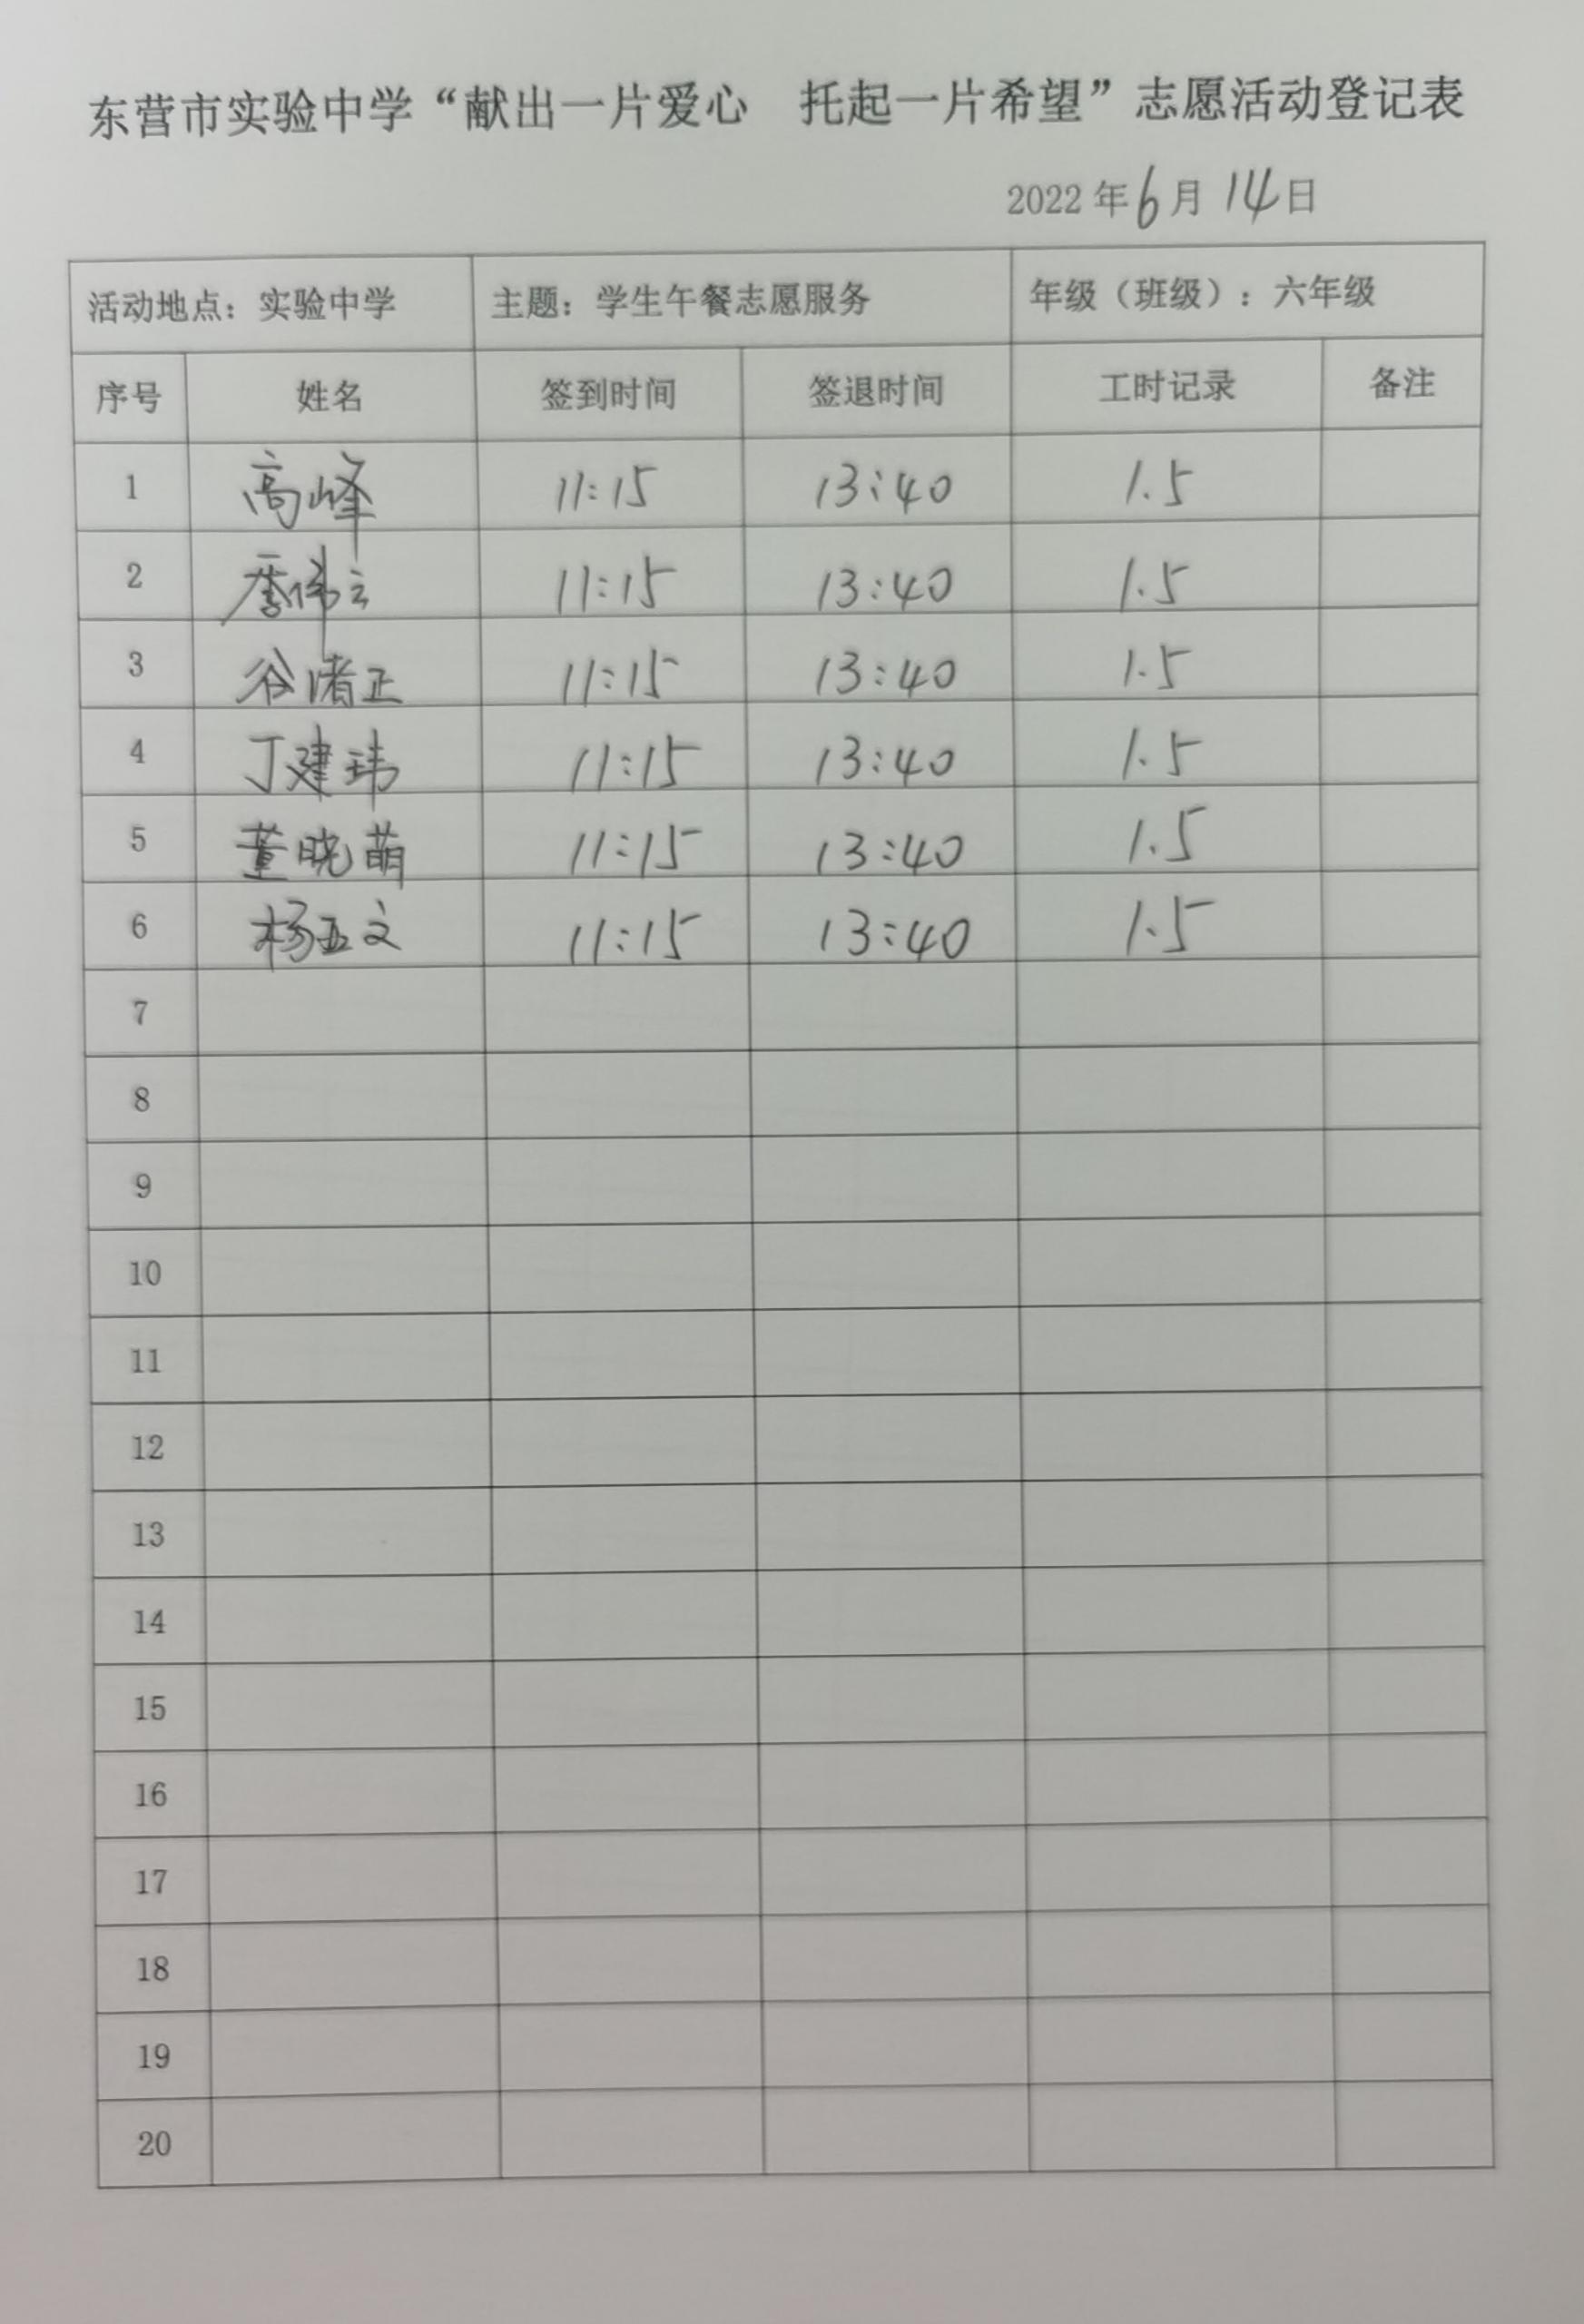 东营市实验中学“献出一片爱心 托起一片希望”志愿活动登记表
2022年6月14日
活动地点：实验中学 主题：学生午餐志愿服务 年级（班级）：六年级
序号 姓名 签到时间 签退时间 工时记录 备注
1 高峰 11:15 13:40 1.5
2 11:15 13:40 1.5
3 11:15 13:40 1.5
4 丁建玮 11:15 13:40 1.5
5 董晓萌 11:15 13:40 1.5
6 11:15 13:40 1.5
7
8
9
10
11
12
13
14
15
16
17
18
19
20